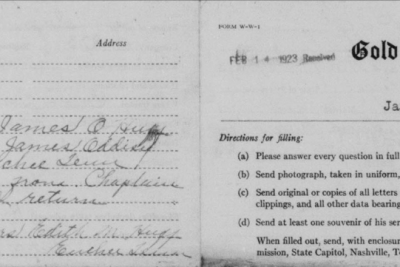 Address
James O Huff
James Eddis
from Chaplain
return
Edith M. Huff
FORM W-W-1
FEB 14 1923 Received
Gold
Ja
Directions for filling:
(a) Please answer every question in full
(b) Send photograph, taken in uniform,
(c) Send original or copies of all letters
clippings, and all other data bearing
(d) Send at least one souvenir of his ser
When filled out, send, with enclosure
mission, State Capitol, Nashville, T